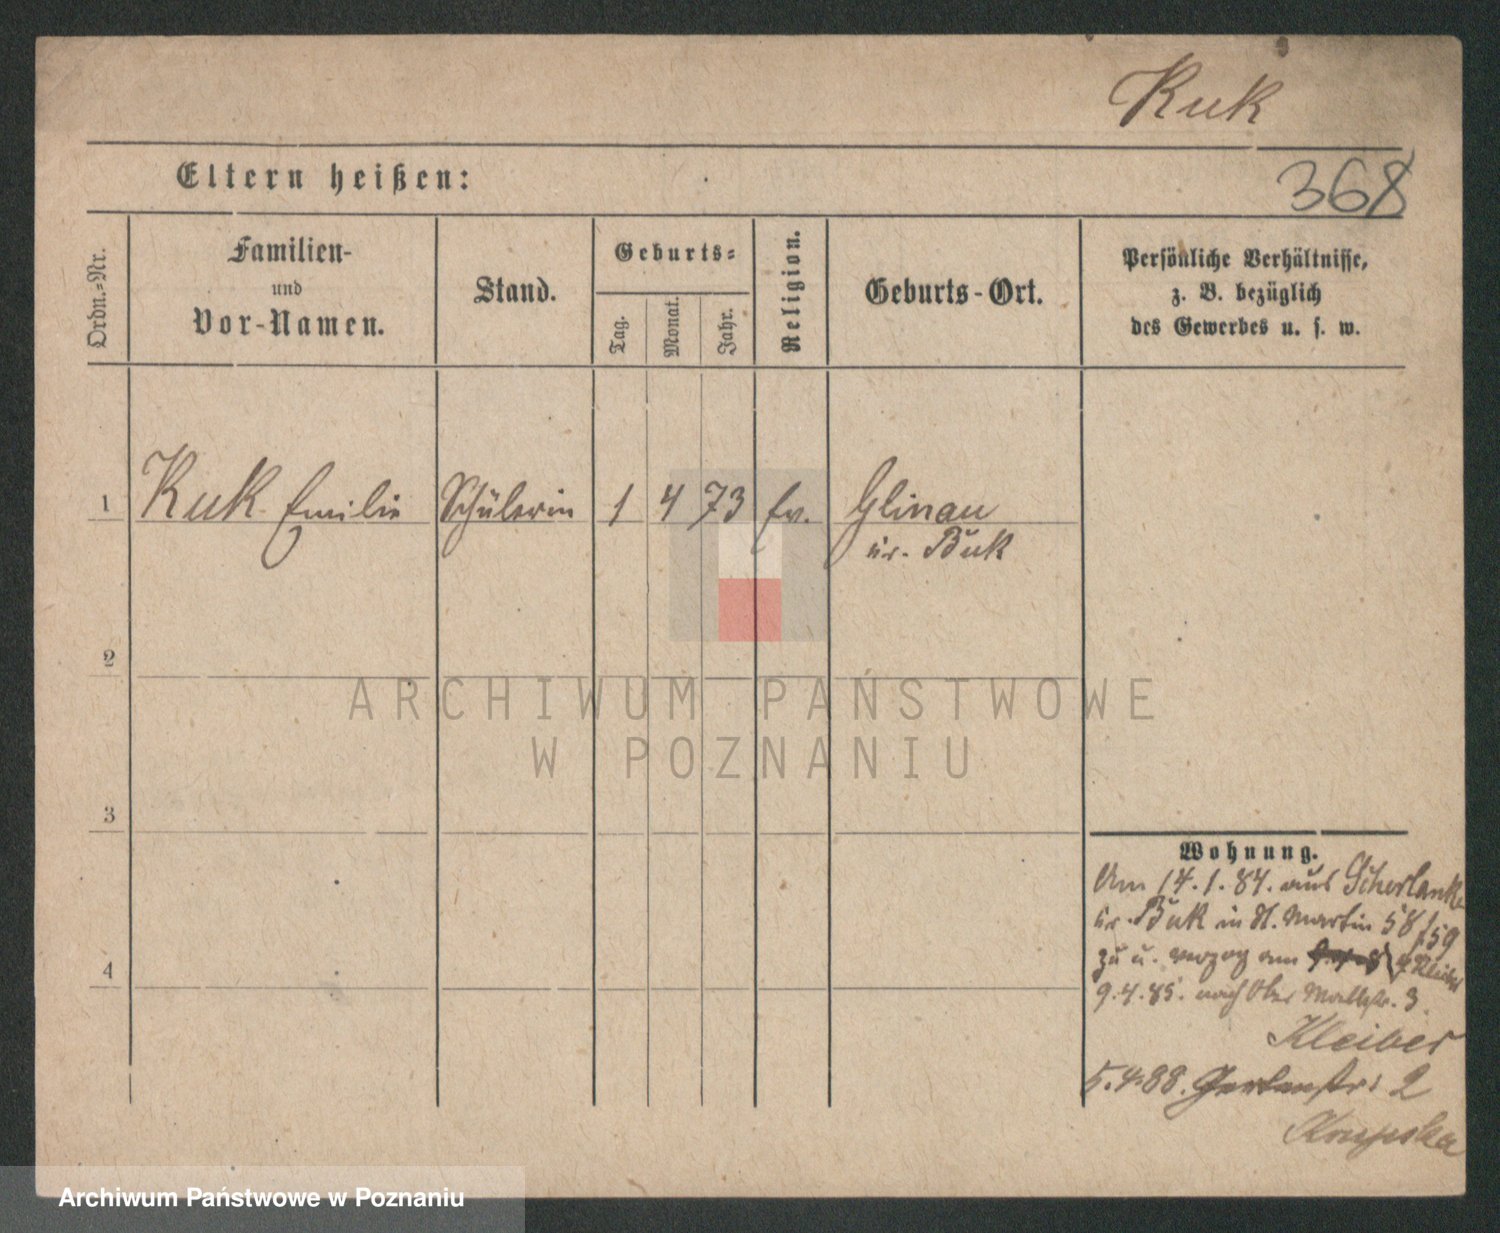 Kuk
368
Eltern heißen:
Ordn.-Nr.
Familien-
und
Vor-Namen.
Stand.
Geburts-
Tag.
Monat.
Jahr.
Religion.
Geburts-Ort.
Persönliche Verhältnisse,
z. B. bezüglich
des Gewerbes u. s. w.
1 Kuk Emilie Schülerin 1 4 73 Ev. Glinau
Kr. Buk
2
3
4
ARCHIWUM PAŃSTWOWE
W POZNANIU
Wohnung.
Am 14.1.84. aus Scherlanke
Kr. Buk in St. Martin 58/59
zu u. verzog am
9.4.85. nach Ober Wallstr. 3.
Kleiber
5.4.88. Gartenstr: 2
Krupska
Archiwum Państwowe w Poznaniu